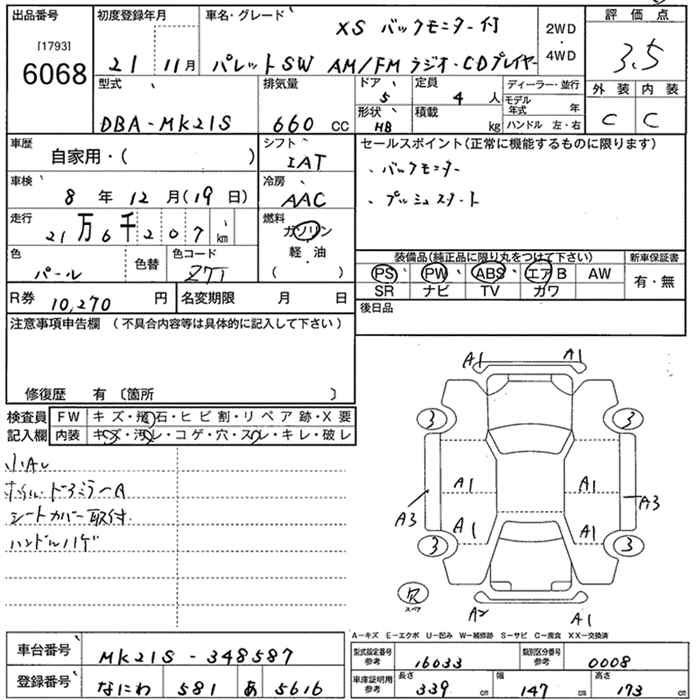 出品番号
[1793]
6068
初度登録年月
21 11月
車名・グレード
XS バックモニター付
パレットSW AM/FMラジオ・CDプレイヤー
2WD
・
4WD
評価点
3.5
外装 内装
C C
型式
DBA-MK21S
排気量
660 cc
ドア
5
形状
HB
定員
4 人
積載
kg
ディーラー・並行
モデル年式 年
ハンドル 左・右
車歴
自家用・( )
シフト
IAT
セールスポイント(正常に機能するものに限ります)
・バックモニター
・プッシュスタート
車検
8 年 12 月(19 日)
冷房
AAC
走行
21万6千207 km
燃料
ガソリン
軽・油
( )
色
パール
色替
色コード
Z7T
装備品(純正品に限り丸をつけて下さい)
PS PW ABS エアB AW
SR ナビ TV カワ
新車保証書
有・無
R券 10,270 円
名変期限 月 日
後日品
注意事項申告欄 (不具合内容等は具体的に記入して下さい)
修復歴 有 〔箇所 〕
検査員記入欄
FW キズ・飛石・ヒビ割・リペア跡・X要
内装 キズ・汚レ・コゲ・穴・スレ・キレ・破レ
小AU
ホイル・ドアミラーA
シートカバー取付
ハンドルハゲ
A1 A1
3 3
A1 A1
A3 A3
A1 A1
3 3
欠
スペア
A2 A1
A-キズ E-エクボ U-凹み W-補修跡 S-サビ C-腐食 XX-交換済
車台番号 MK21S-348587
登録番号 なにわ 581 あ 5616
型式指定番号
参考
16033
類別区分番号
参考
0008
車庫証明用
参考
長さ
339 cm
幅
147 cm
高さ
173 cm